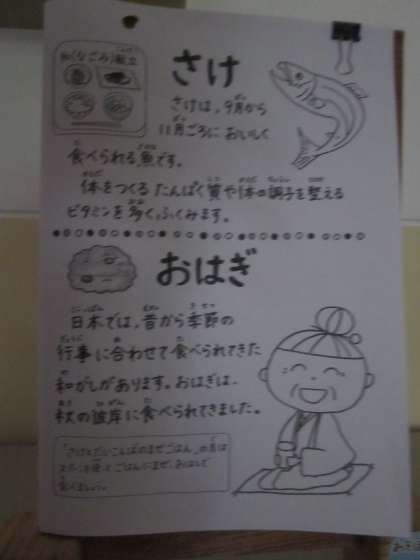 和(なごみ)献立
さけ
さけは、9月から
11月ごろにおいしく
食べられる魚です。
体をつくるたんぱく質や体の調子を整える
ビタミンを多くふくみます。
おはぎ
日本では、昔から季節の
行事に合わせて食べられてきた
和がしがあります。おはぎは、
秋の彼岸に食べられてきました。
「さけとだいこんばのまぜごはん」の具は
ごはんにまぜ
食べましょう。